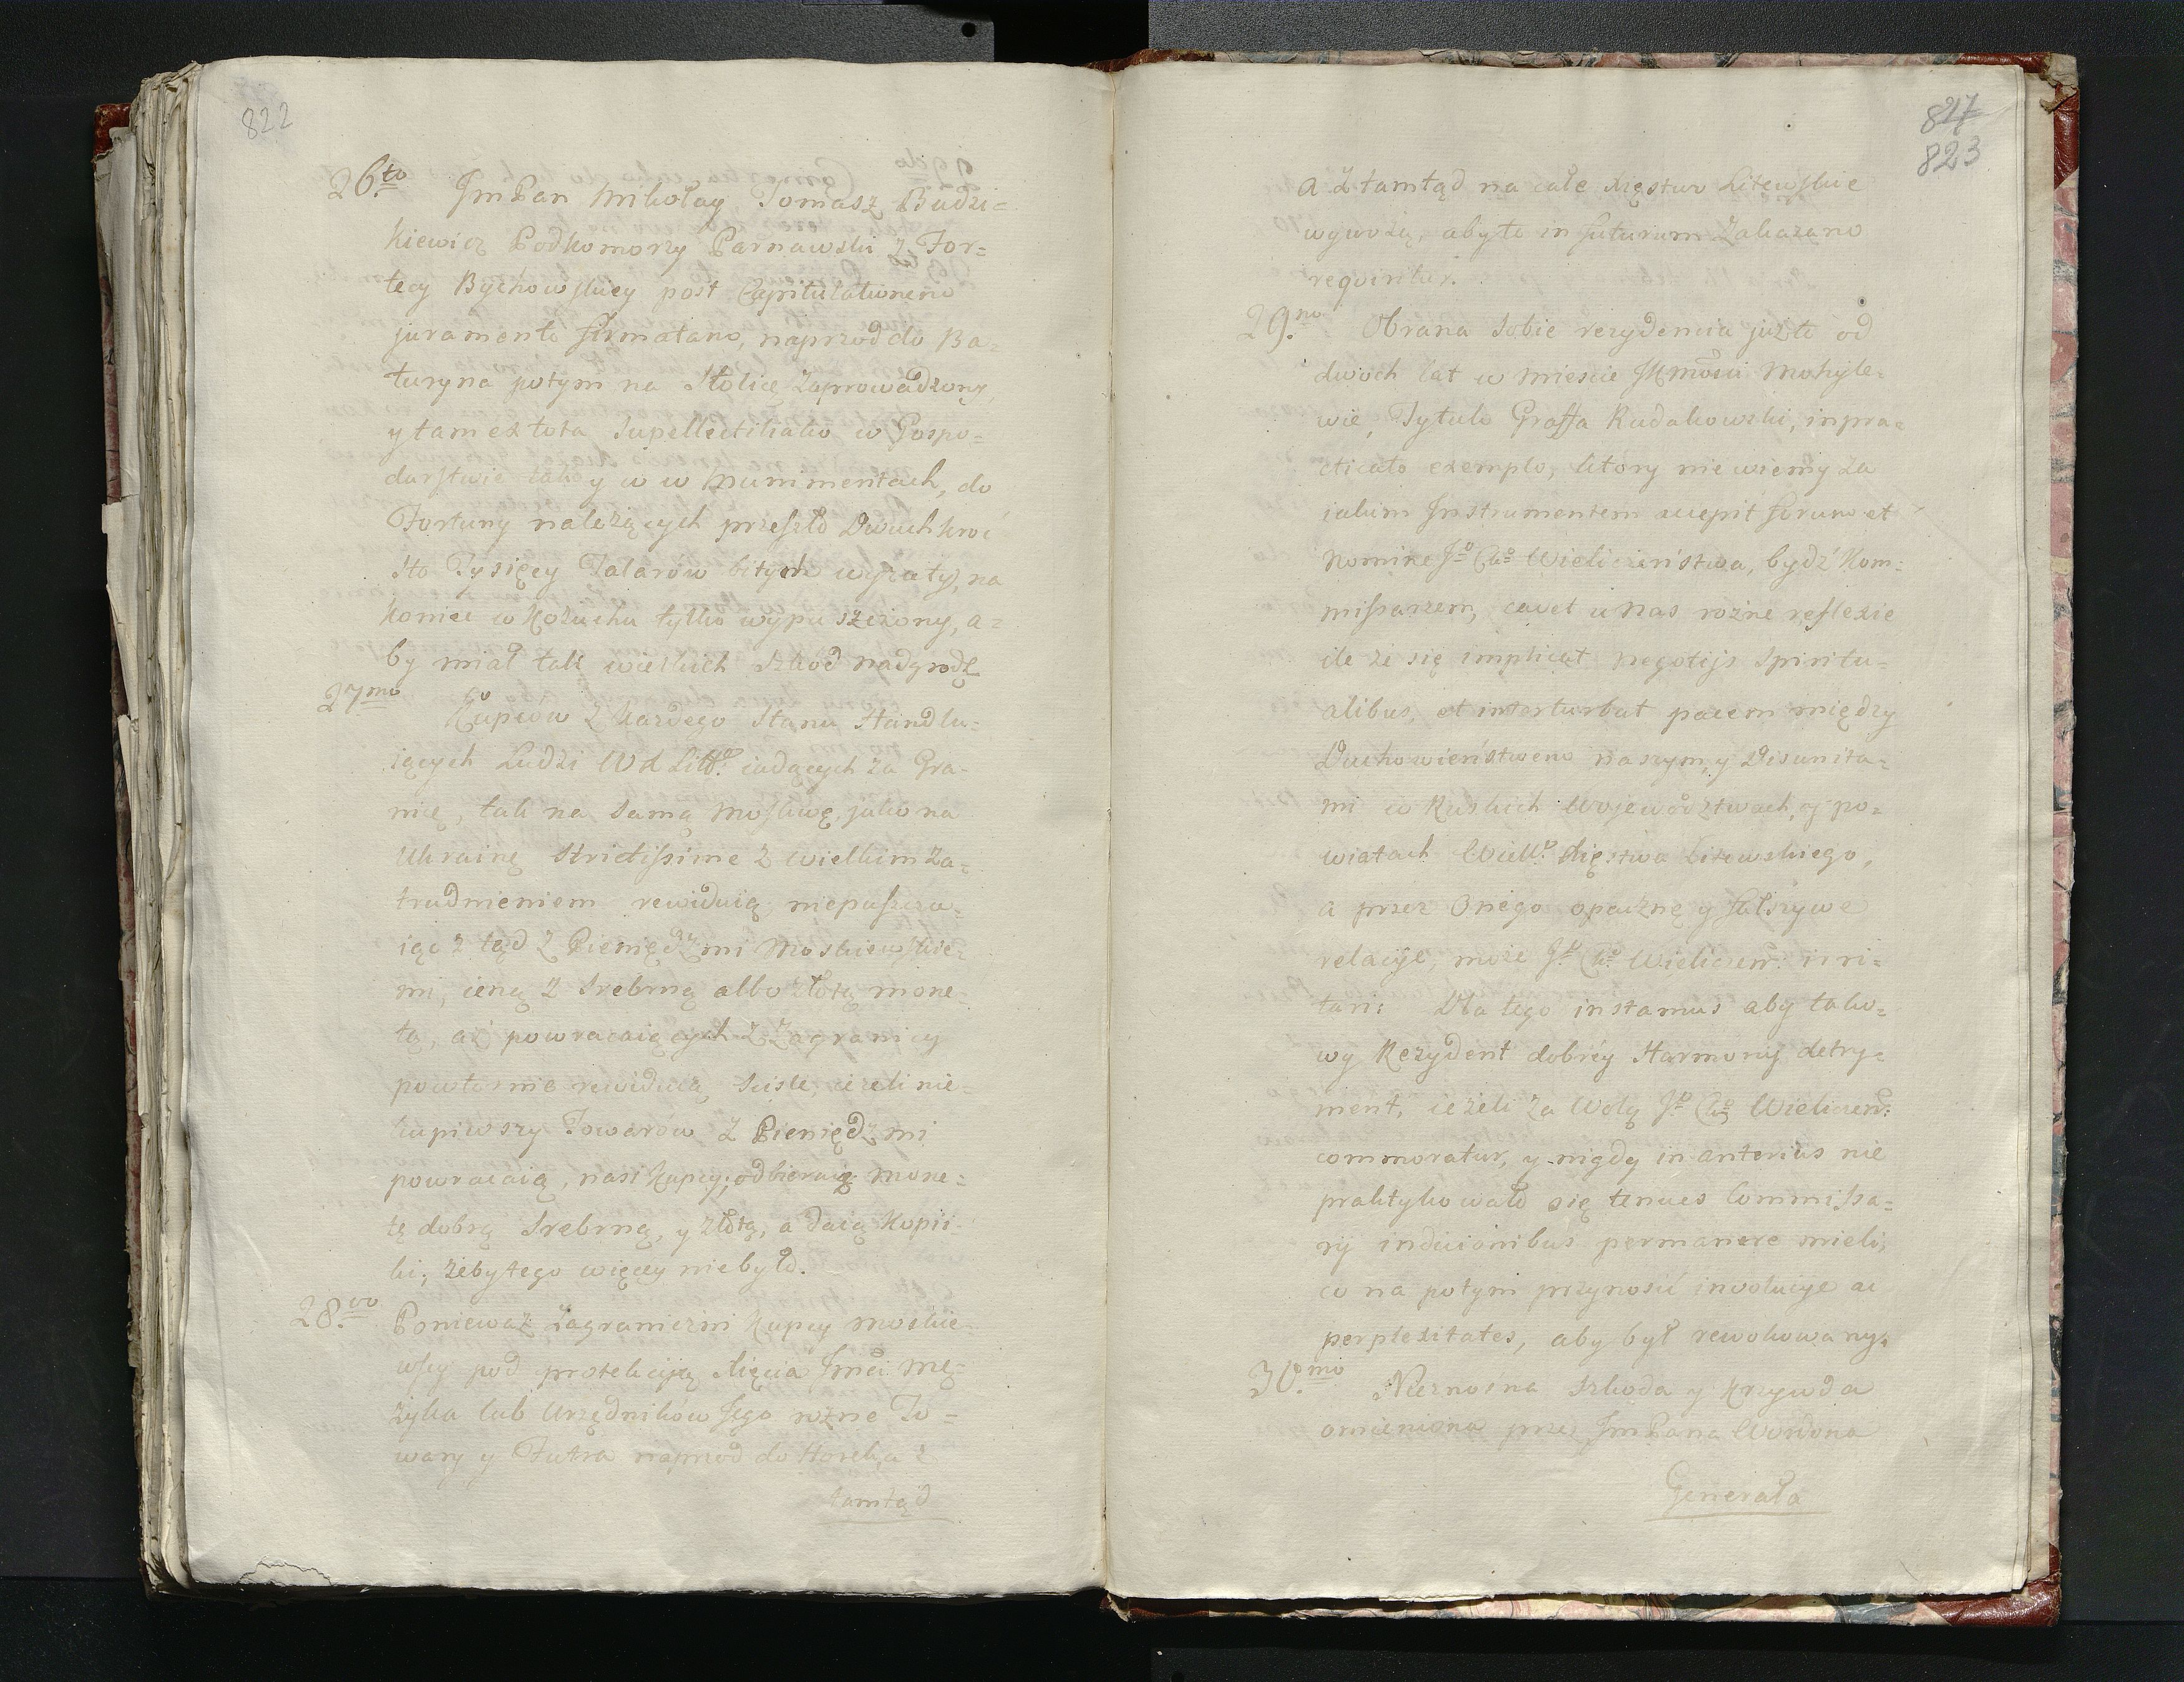 822
26.to JmPan Mikołay Tomasz Budzi=
kiewicz Podkomorzy Parnawski z For=
tecy Bychowskiey post Capitulationem
juramento firmatam, naprzod do Ba=
turyna potym na Stolicę zaprowadzony,
y tam ex tota Supellectili iako w Gospo=
darstwie tak y w Mummentach, do
Fortuny należących przeszło Dwuchkroć
Sto Tysięcy Talarow bitych wyzuty, na
koniec w Kożuchu tylko wypuszczony, a=
by miał tak wielkich Szkod nadgrodę
27mo Kupcow z każdego Stanu Handlu=
iących Ludzi Wd Litto. iadących za Gra=
nicę, tak na Samą Moskwę, jako na
Ukrainę Strictissime z wielkim za=
trudnieniem rewiduią, niepuszcza=
iąc z tąd z Pieniędzmi Moskiewskie=
mi, ieno z Srebrną albo złotą mone=
tą, a powracaiących z Zagranicy
powtornie rewiduią Sciśle, ieżeli nie
kupiwszy Towarow z Pieniędzmi
powracaią, nasi Kupcy, odbieraią mone=
tę dobrą Srebrną, y złotą, a daią Kopii=
ki, żeby tego więcey niebyło.
28.vo Ponieważ zagraniczni Kupcy Moskie=
wscy pod protekcyą Xięcia Jmci Mę=
żyka lub Urzędnikow Jego rożne To=
wary y Futra naprzod do Horek, a z
tamtąd
817
823
a z tamtąd na całe Xięstwo Litewskie
wywożą, aby to in futurum Zakazano
requiritur.
29.no Obrana Sobie rezydencia już to od
dwoch lat w Mieście JKmości Mohyle=
wie, Tytulo Graffa Rudakowski, inpra=
cticato exemplo, ktory nie wiemy za
iakim Instrumentem accepit forum et
Nomine Jo Cko Wieliczeństwa, bydź Kom=
missarzem, cauet u Nas rożne reflexie
ile że się implicat negotijs Spiritu=
alibus, et interturbat pacem między
Duchowieństwem naszym, y Disunita=
mi w Ruskich Woiewodztwach, y po=
wiatach Wielko. Xięstwa Litewskiego,
a przez Onego opaczne y fałszywe
relacye, może Jo Cko Wieliczen: irri=
tari: Dla tego instamus aby tako=
wy Rezydent dobrey Harmony detry=
ment, ieżeli za Wolą Jo Cko Wieliczen:
commoratur, y nigdy in anterius nie
praktykowało się tenues Commissa=
rij indicionibus permanere mieli,
co na potym przynosić involucye ac
perplexitates, aby był rewokowany.
30.mo Nieznośna Szkoda y Krzywda
omieniona przez JmPana Wordona
Generała